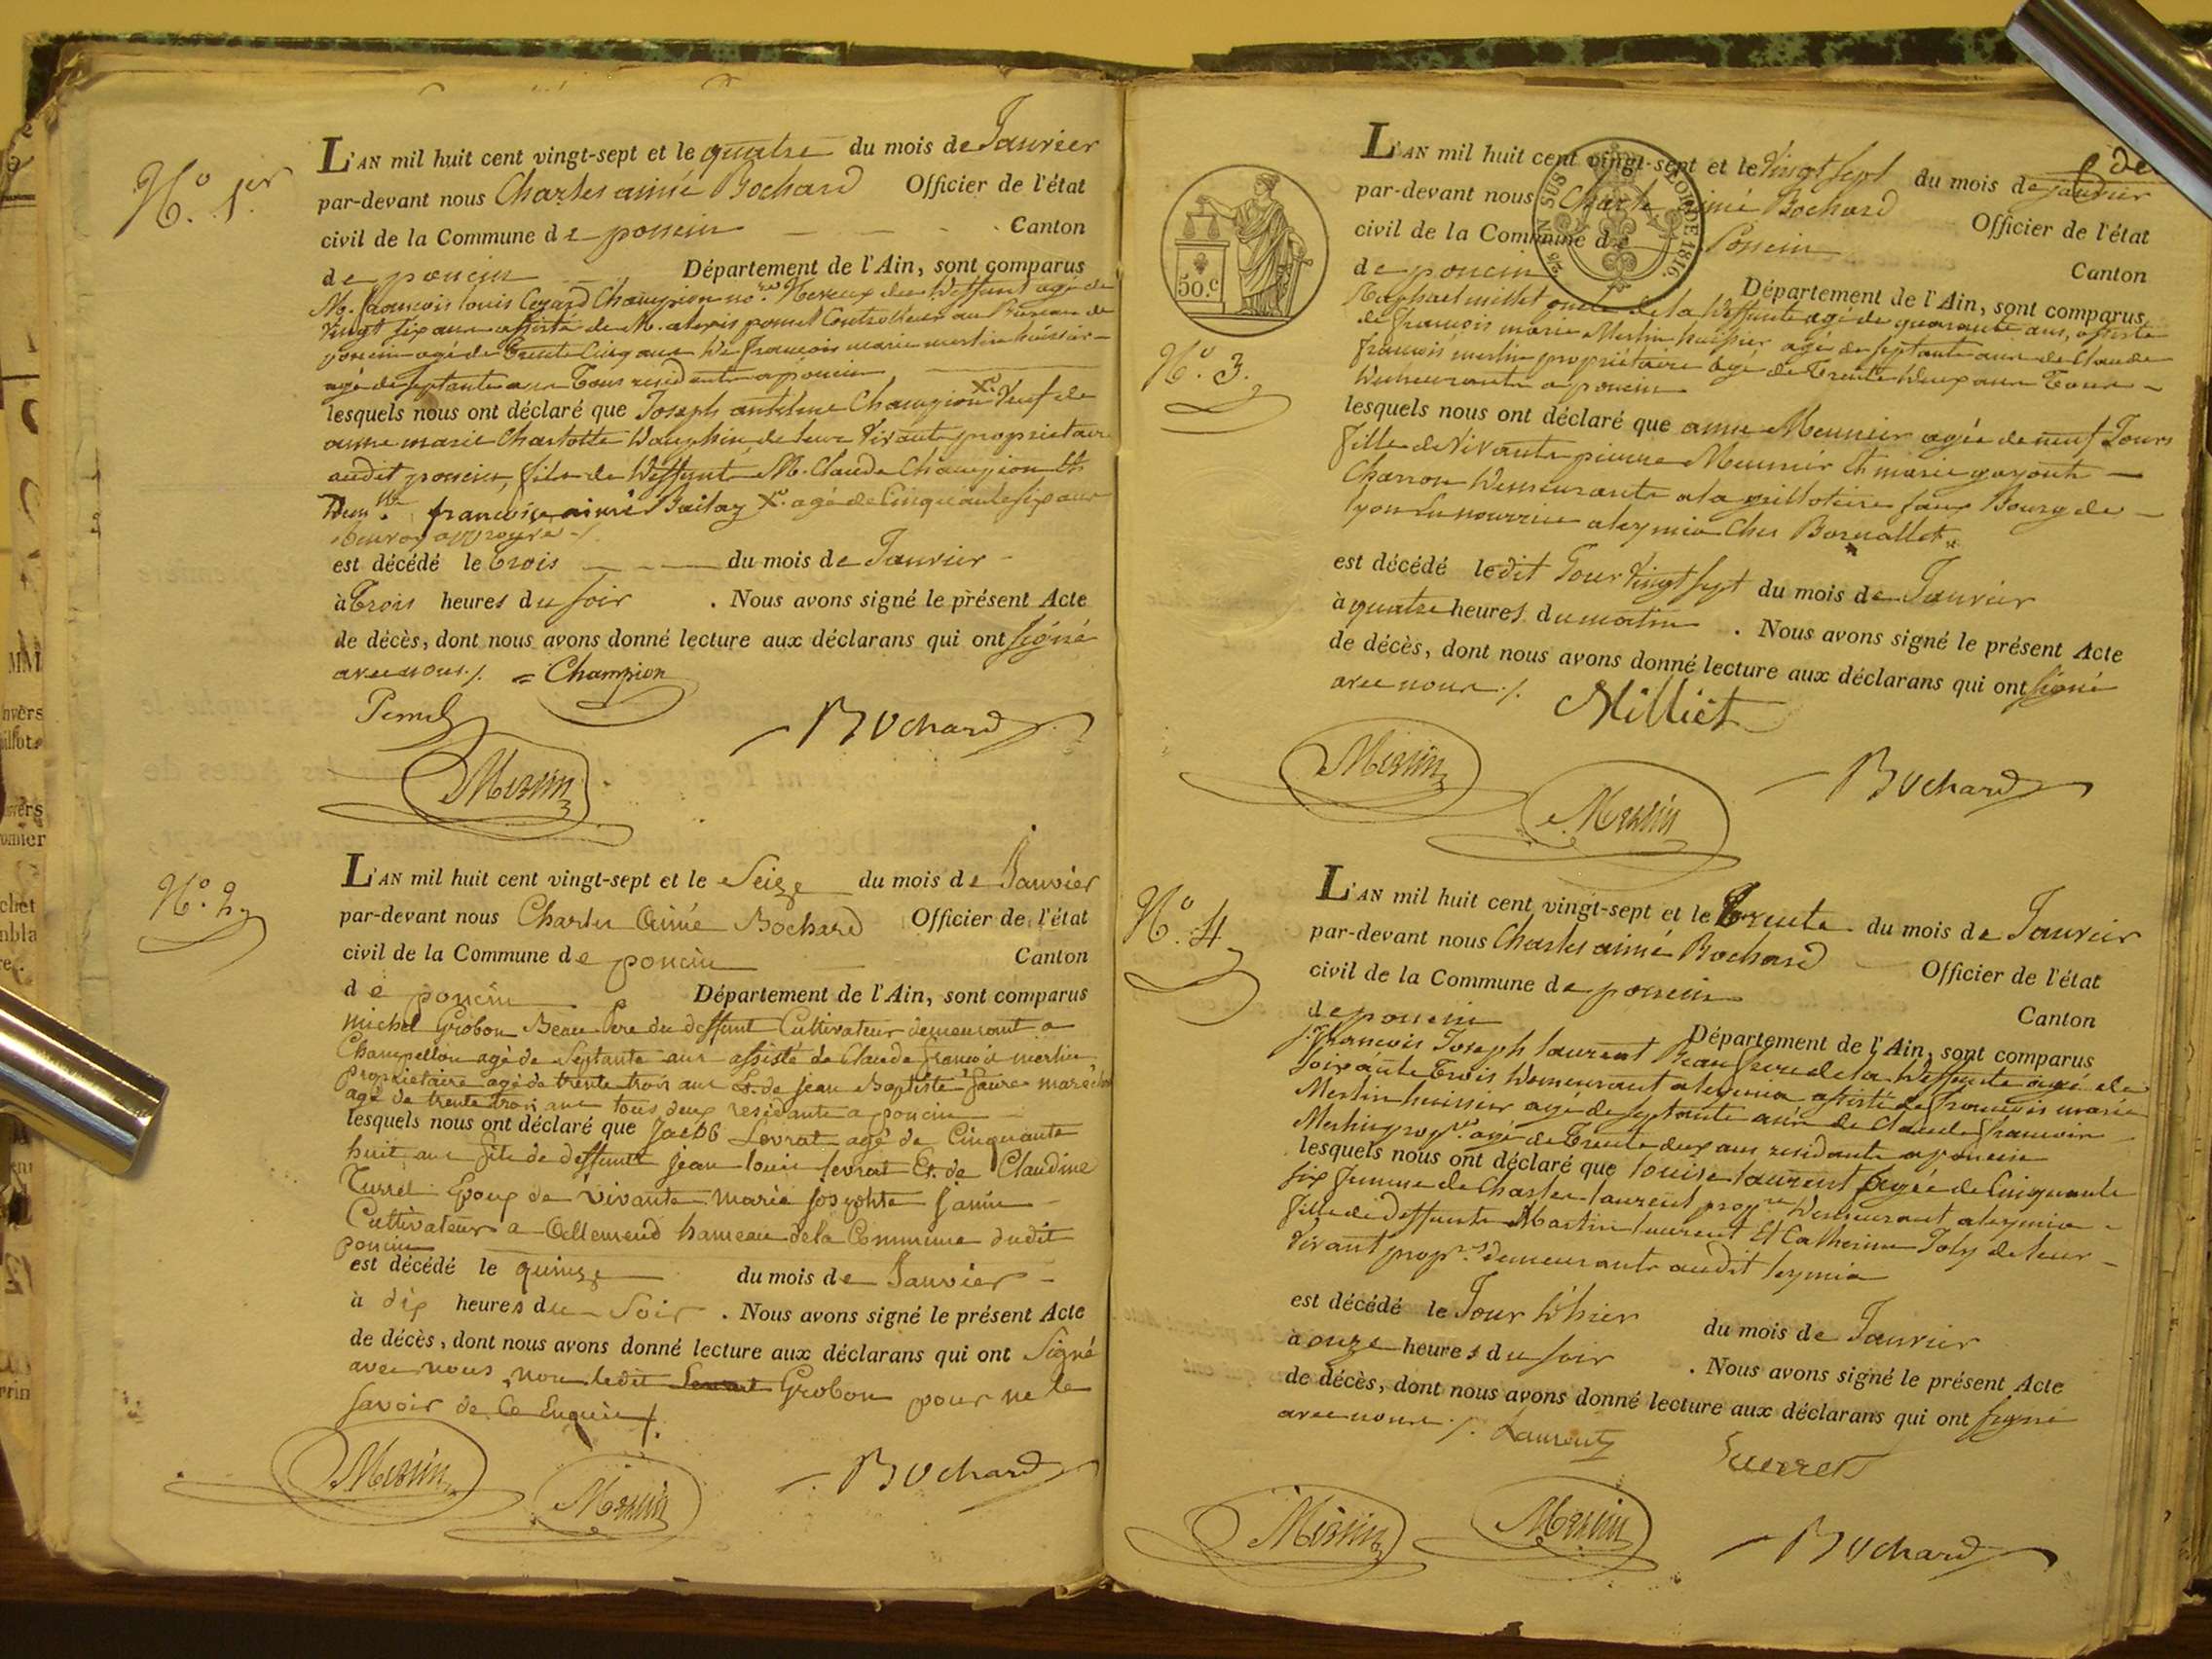 N.º 1.er
L'AN mil huit cent vingt-sept et le quatre du mois de Janvier
par-devant nous Charles aimé Bochard Officier de l'état
civil de la Commune de poncin Canton
de poncin Département de l'Ain, sont comparus
M. francois louis Champion Neveux du deffunt agé de
vingt six ans assisté de M. alexis Controlleur au Bureau de
poncin agé de trente cinq ans De françois marie merlin huissier
agé de septante ans tous residents a poncin
lesquels nous ont déclaré que Joseph antelme Champion Veuf de
anne marie Charlotte Dauphin de leur Vivant propriétaire
audit poncin, fils de deffunt M. Claude Champion Et
francoise aimée agé de Cinquante six ans
est décédé le trois du mois de Janvier
à trois heures du soir . Nous avons signé le présent Acte
de décès, dont nous avons donné lecture aux déclarans qui ont signé
avec nous ./. Champion
Bochard
Merlin
N.º 2
L'AN mil huit cent vingt-sept et le Seize du mois de Janvier
par-devant nous Charles Aimé Bochard Officier de l'état
civil de la Commune de poncin Canton
de poncin Département de l'Ain, sont comparus
Michel Grobon Beau Pere du deffunt Cultivateur demeurant a
Champeillon agé de Septante ans assisté de Claude françois merlin
Proprietaire agé de trente trois ans Et de jean Baptiste faure marechal
agé de trente trois ans tous deux residants a poncin
lesquels nous ont déclaré que Jacob Levrat agé de Cinquante
huit ans fils de deffunt jean louis levrat Et de Claudine
Epoux de vivante marie josephte janin
Cultivateur a Allement hameau de la Commune dudit
poncin
est décédé le quinze du mois de Janvier
à dix heures du Soir . Nous avons signé le présent Acte
de décès, dont nous avons donné lecture aux déclarans qui ont Signé
avec nous, non ledit Grobon pour ne le
savoir de Ce Enquis ./.
Merlin Merlin Bochard
50.C
LOI DE 1816.
N.º 3.
L'AN mil huit cent vingt-sept et le Vingt Sept du mois de janvier
par-devant nous Charle aimé Bochard Officier de l'état
civil de la Commune de Poncin Canton
de poncin Département de l'Ain, sont comparus
Raphael milliet de la Deffunte agé de quarante ans, assisté
de françois marie Merlin huissier agé de septante ans de Claude
francois merlin propriétaire agé de trente deux ans tous
Demeurants a poncin
lesquels nous ont déclaré que anne Meunier agée de neuf Jours
fille de Vivants pierre Meunier Et marie
Charron Demeurants a la guillotiere faux Bourg de
lyon En nourrice a leymia Ches
est décédé ledit Jour Vingt sept du mois de Janvier
à quatre heures du matin . Nous avons signé le présent Acte
de décès, dont nous avons donné lecture aux déclarans qui ont signé
avec nous ./. Milliet
Merlin Merlin Bochard
N.º 4
L'AN mil huit cent vingt-sept et le trente du mois de Janvier
par-devant nous Charles aimé Bochard Officier de l'état
civil de la Commune de poncin Canton
de poncin Département de l'Ain, sont comparus
francois Joseph laurent Beau frere de la Deffunte agé de
soixante trois Demeurant a leymia assisté de françois marie
Merlin huissier agé de septante ans de Claude francois
Merlin prop.re agé de trente deux ans residants a poncin
lesquels nous ont déclaré que louise laurent agée de Cinquante
six femme de Charles laurent prop.re Demeurant a leymia
fille de deffunts Martin laurent Et Catherine Joly de leur
Vivant prop.res demeurants audit leymia
est décédé le Jour D'hier du mois de Janvier
à onze heures du soir . Nous avons signé le présent Acte
de décès, dont nous avons donné lecture aux déclarans qui ont signé
avec nous ./. Laurent
Merlin Merlin Bochard